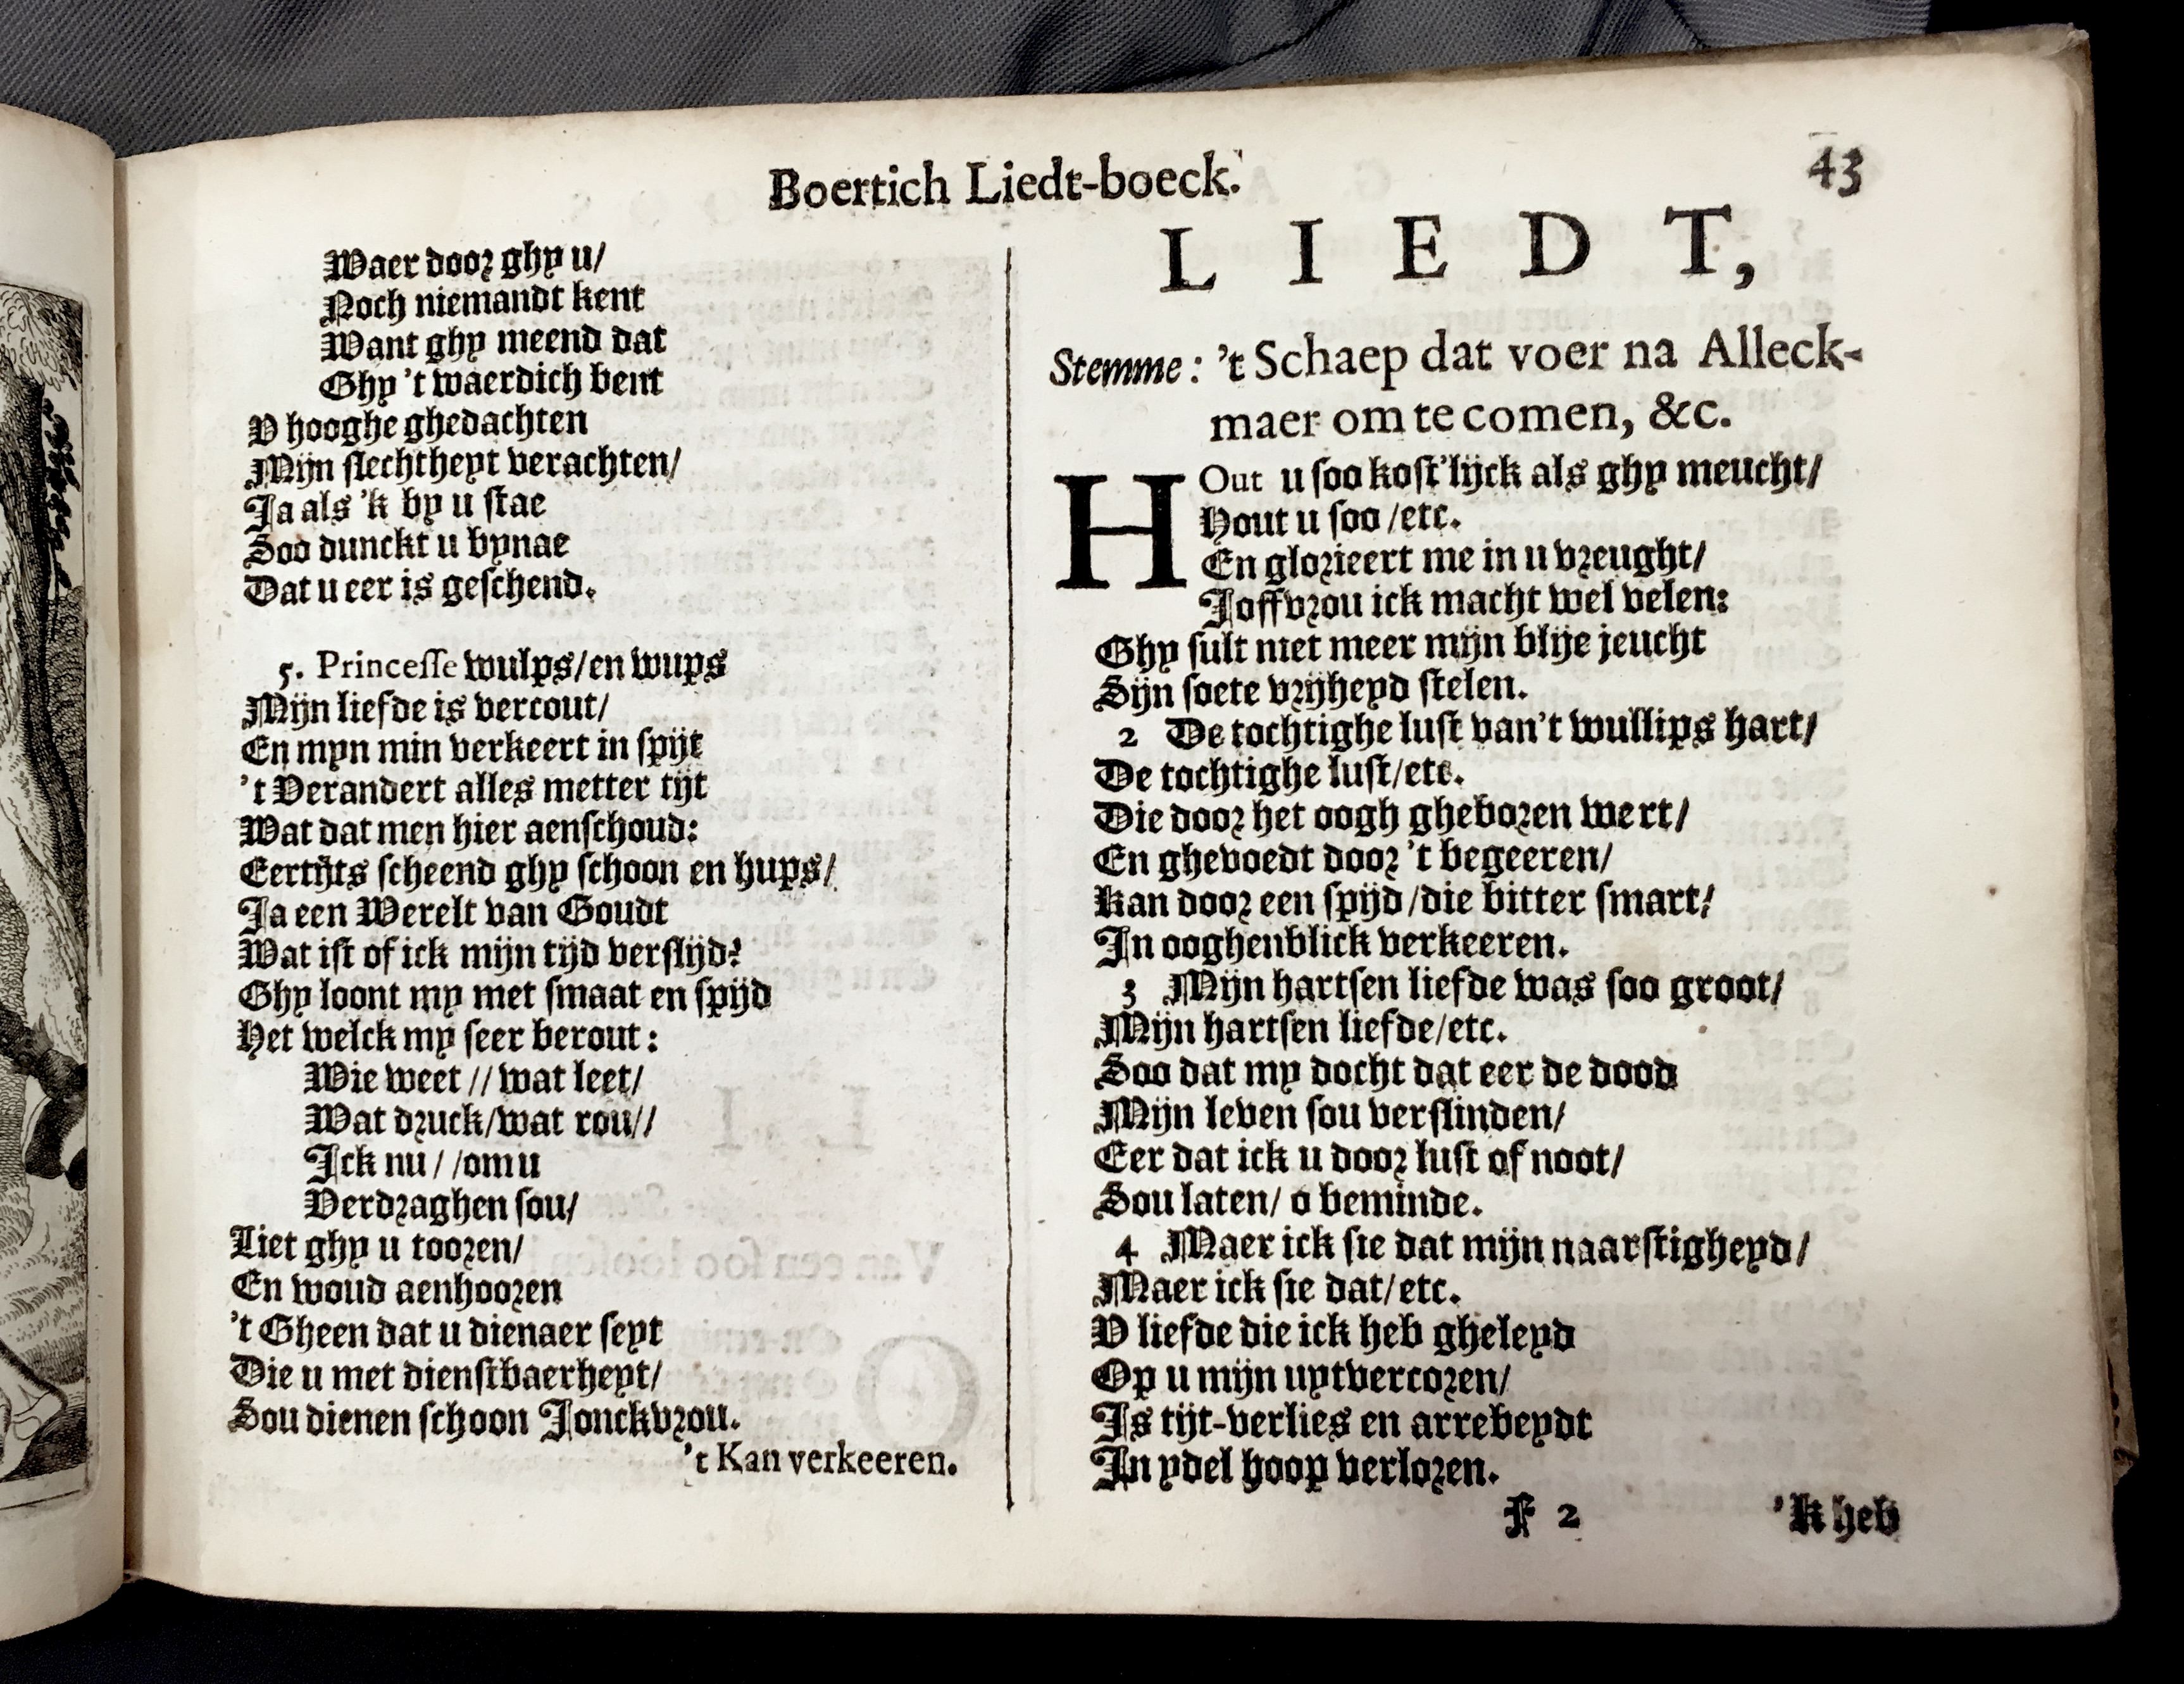 Boertich Liedt-boeck.
43
Waer door ghy u/
Noch niemandt kent
Want ghy meend dat
Ghy 't waerdich bent
V hooghe ghedachten
Mijn slechtheyt verachten/
Ja als 'k by u stae
Soo dunckt u bynae
Dat u eer is geschend.
5. Princesse wulps/en wups
Mijn liefde is vercout/
En myn min verkeert in spijt
't Verandert alles metter tijt
Wat dat men hier aenschoud:
Eertijts scheend ghy schoon en hups/
Ja een Werelt van Goudt
Wat ist of ick mijn tijd verslijd?
Ghy loont my met smaat en spijd
Het welck my seer berout:
Wie weet // wat leet/
Wat druck/wat rou//
Ick nu/ /om u
Verdraghen sou/
Liet ghy u tooren/
En woud aenhooren
't Gheen dat u dienaer seyt
Die u met dienstbaerheyt/
Sou dienen schoon Jonckvrou.
't Kan verkeeren.
LIEDT,
Stemme: 't Schaep dat voer na Alleck-
maer om te comen, &c.
HOut u soo kost'lijck als ghy meucht/
Hout u soo /etc.
En glorieert me in u vreught/
Joffvrou ick macht wel velen:
Ghy sult niet meer mijn blije jeucht
Sijn soete vrijheyd stelen.
2 De tochtighe lust van't wullips hart/
De tochtighe lust/etc.
Die door het oogh gheboren wert/
En ghevoedt door 't begeeren/
Kan door een spijd/die bitter smart/
In ooghenblick verkeeren.
3 Mijn hartsen liefde was soo groot/
Mijn hartsen liefde/etc.
Soo dat my docht dat eer de dood
Mijn leven sou verslinden/
Eer dat ick u door lust of noot/
Sou laten/ o beminde.
4 Maer ick sie dat mijn naarstigheyd/
Maer ick sie dat/etc.
V liefde die ick heb gheleyd
Op u mijn uytvercoren/
Is tijt-verlies en arrebeydt
In ydel hoop verloren.
F 2
'k heb